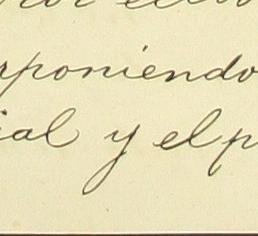 rponiendo
ial y el p